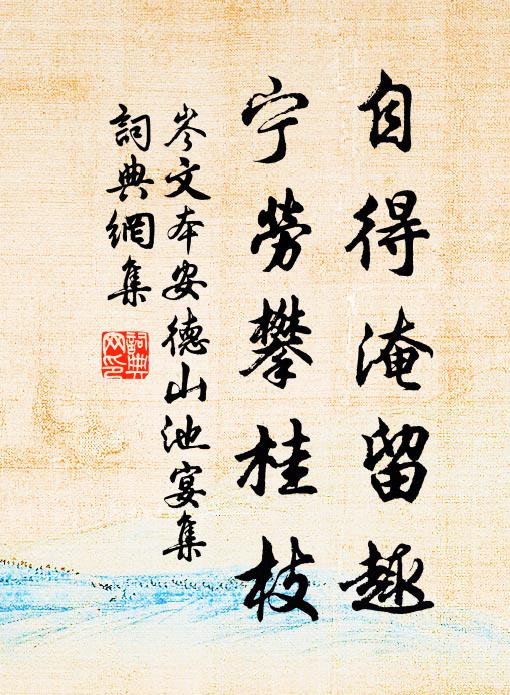 自得淹留趣
宁勞攀桂枝
岑文本安德山池宴集
詞典網集
詞典網印